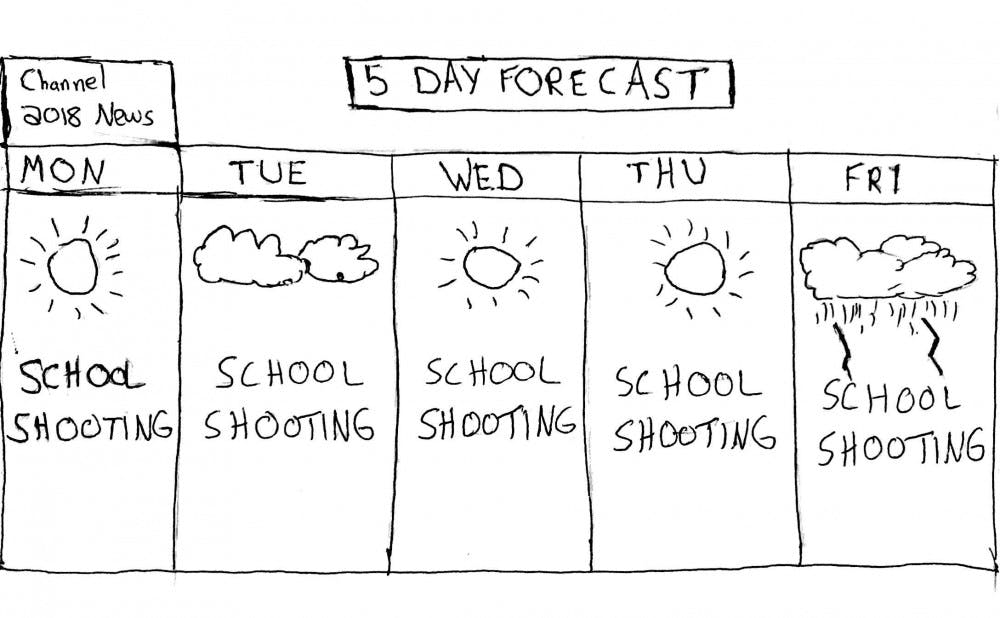 Channel
2018 News
5 DAY FORECAST
MON
TUE
WED
THU
FRI
SCHOOL
SHOOTING
SCHOOL
SHOOTING
SCHOOL
SHOOTING
SCHOOL
SHOOTING
SCHOOL
SHOOTING